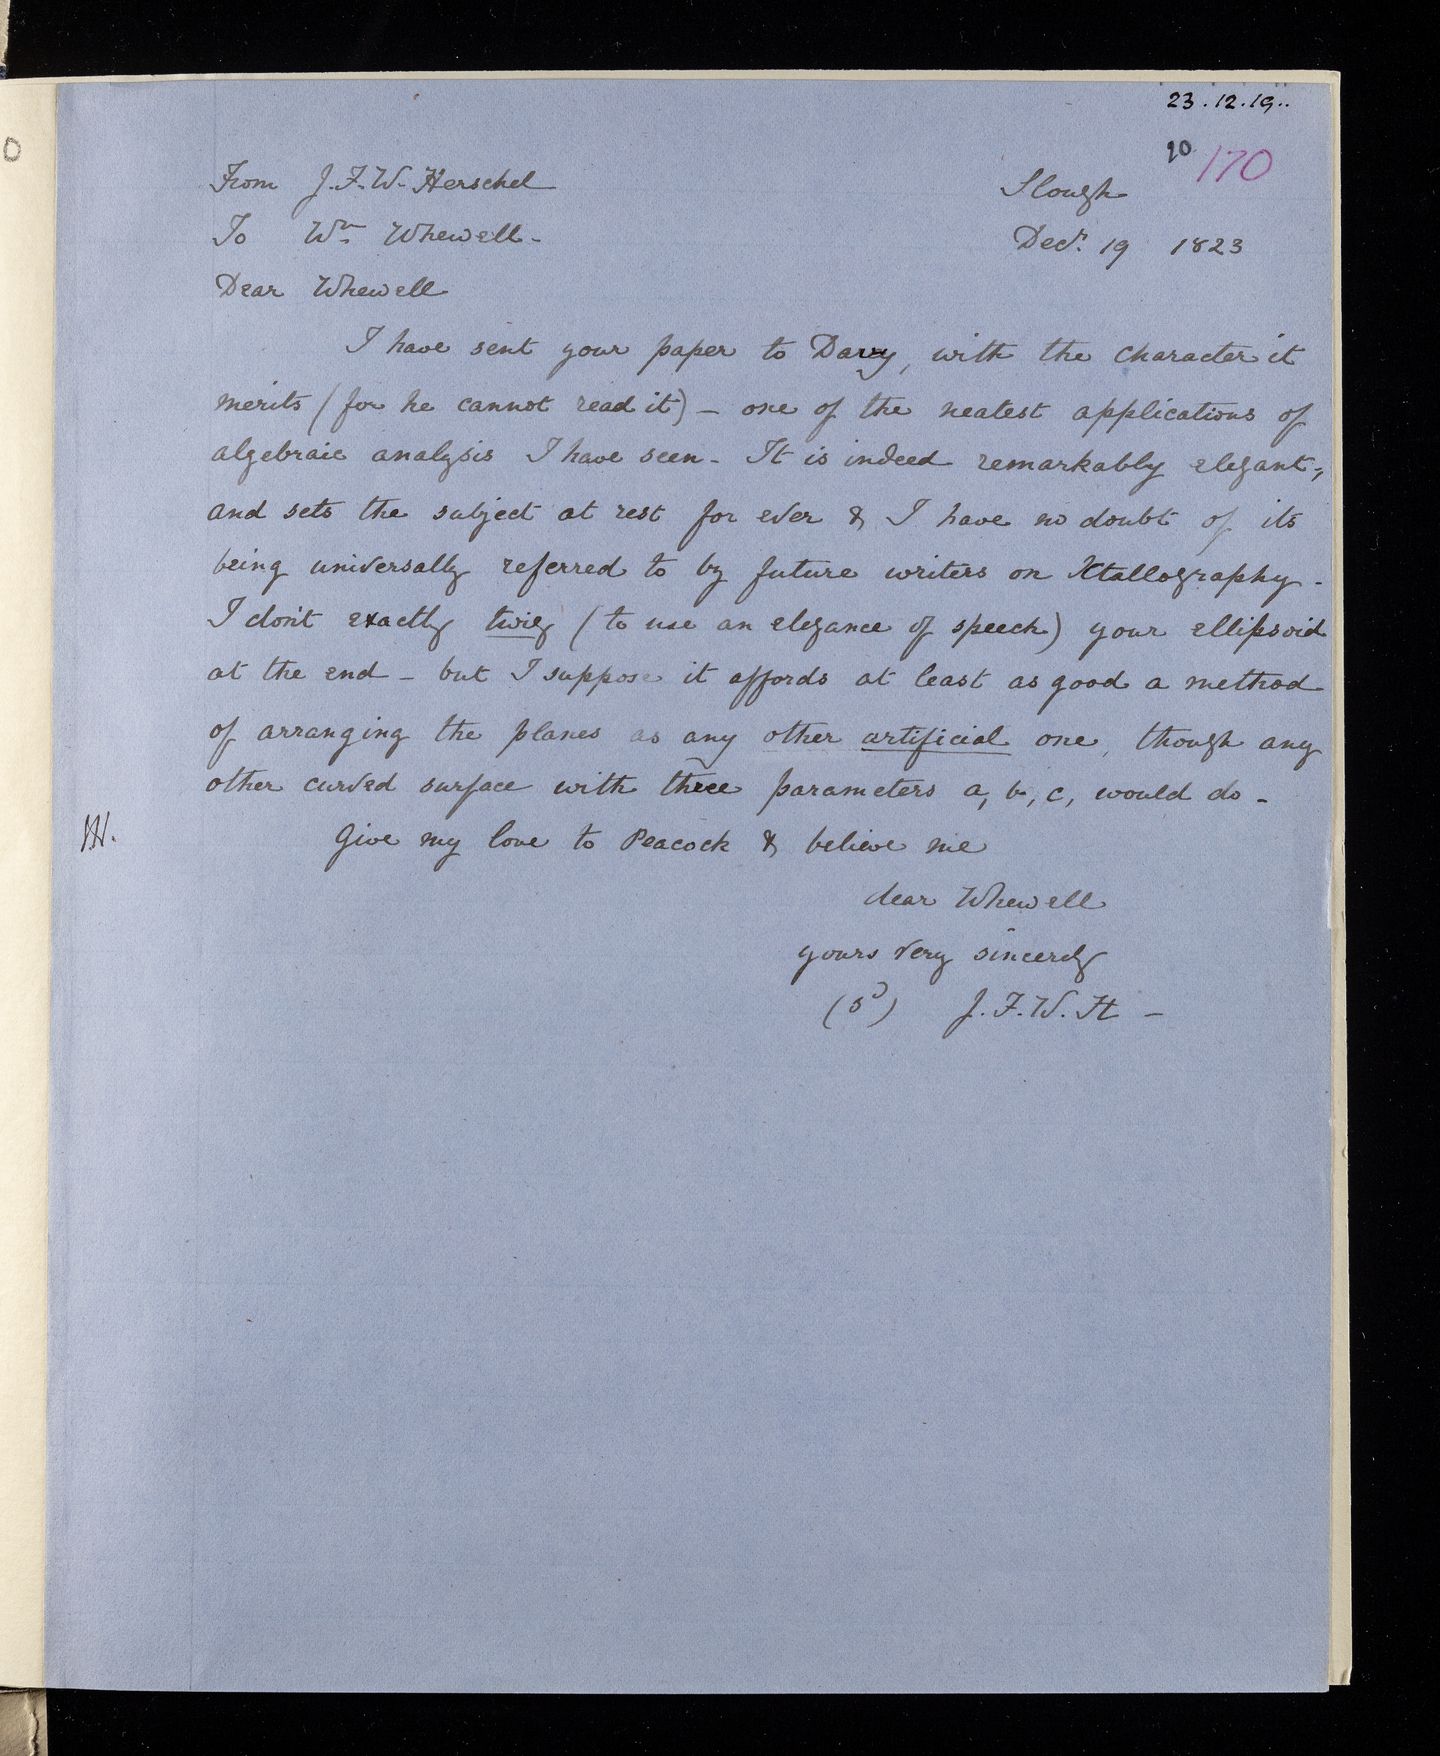 23.12.19..
20 170
From J.F.W. Herschel Slough
To Wm Whewell - Decr. 19 1823
Dear Whewell
I have sent your paper to Davy, with the character it
merits (for he cannot read it) - one of the neatest applications of
algebraic analysis I have seen - It is indeed remarkably elegant,
and sets the subject at rest for ever & I have no doubt of its
being universally referred to by future writers on Xtallography -
I don't exactly twig (to use an elegance of speech) your ellipsoid
at the end - but I suppose it affords at least as good a method
of arranging the planes as any other artificial one, though any
other curved surface with three parameters a, b, c, would do -
Give my love to Peacock & believe me
dear Whewell
yours very sincerely
(sd) J.F.W.H -